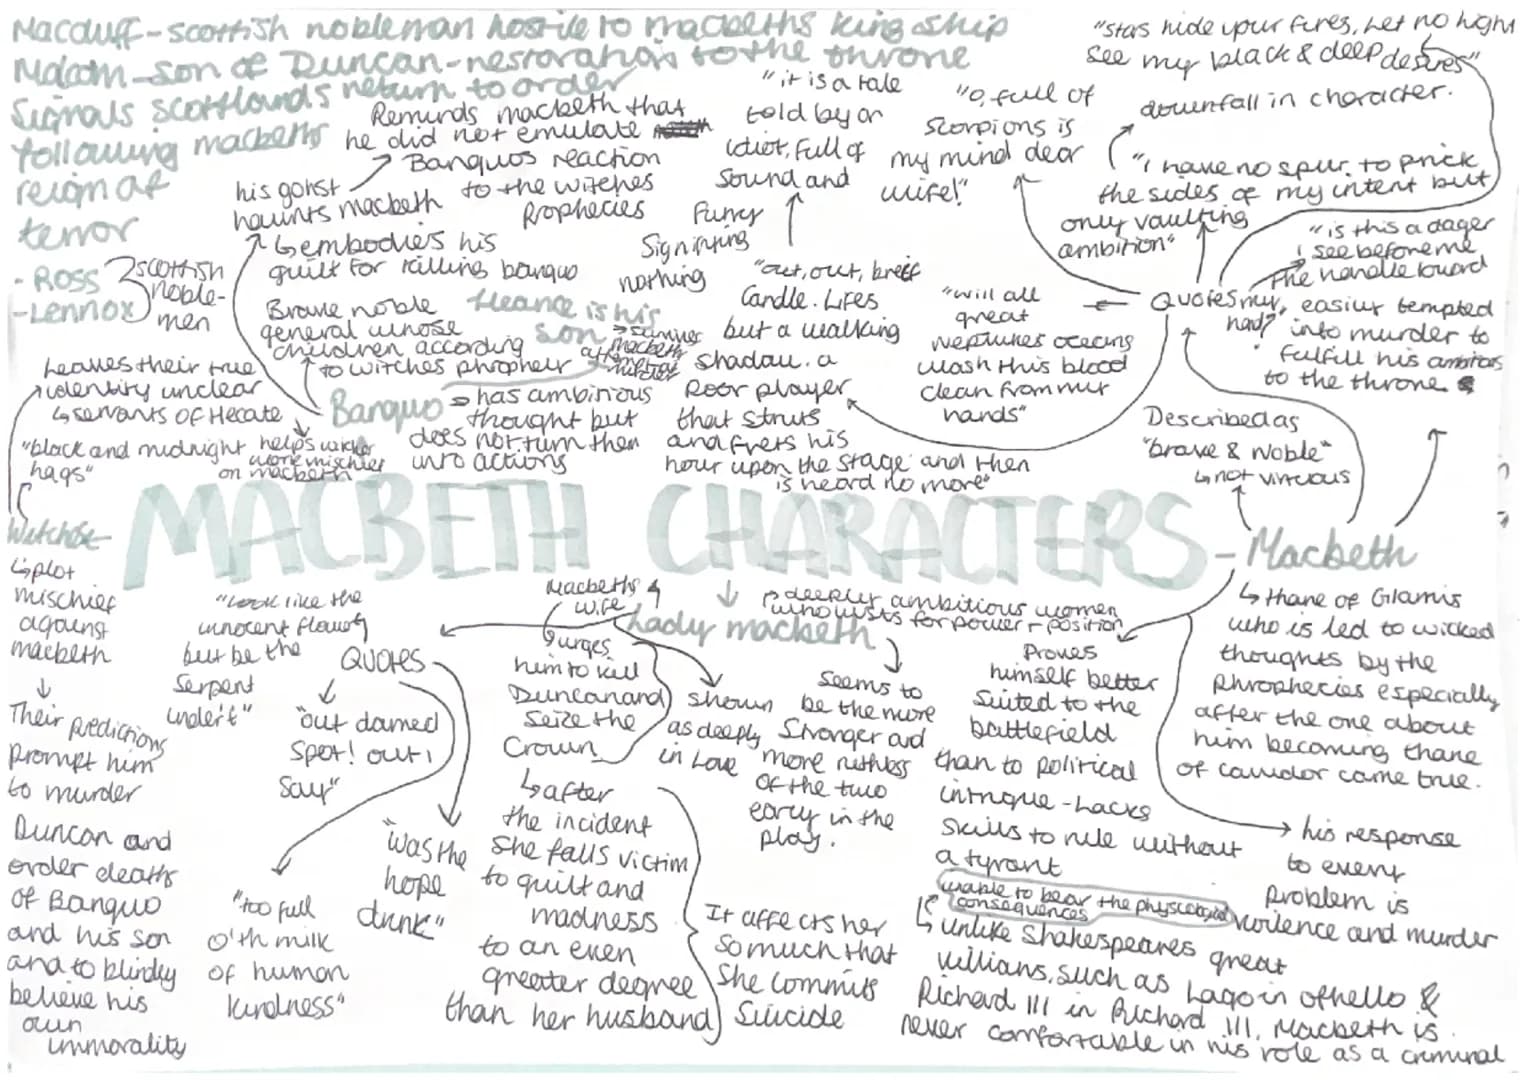 Macduff - scottish nobleman hostile to macbeths king ship
Malcom - son of Duncan - restoration to the throne
Signals scotlands return to order
following macbeths
reign of
terror
- Ross
- Lennox
scottish
noble-
men
his gohst
haunts macbeth
Reminds macbeth that
he did not emulate
Banquos reaction
to the witches
prophecies
↳ embodies his
guilt for killing banquo
Brave noble
general whose
children according
to witches phrophecy
fleance is his
son
Banquo
has ambitious
thought but
does not turn them
into actions
"it is a tale
told by an
idiot, full of
sound and
furry
Signifying
nothing
"out, out, breif
Candle. Lifes
but a walking
shadow. a
Poor player
that struts
and frets his
hour upon the stage and then
is heard no more"
"O, full of
scorpions is
my mind dear
wife!"
"stars hide your fires, Let no light
see my black & deep desires"
downfall in character.
"I have no spur to prick
the sides of my intent but
only vaulting
ambition"
"is this a dager
i see before me
The handle toward
my
had?"
Quotes
easily tempted
into murder to
fulfill his ambitions
to the throne
"will all
great
neptunes oceans
wash this blood
clean from my
hands"
Described as
"brave & Noble"
↳ not virtuous
leaves their true
identity unclear
↳ servants of Hecate
"black and midnight
hags"
helps
more mischief
on macbeth
MACBETH CHARACTERS
- Macbeth
Witches
↳ plot
mischief
against
macbeth
↓
Their predictions
prompt him
to murder
Duncan and
order deaths
of Banquo
and his son
and to blindly
believe his
own
immorality
"Look like the
innocent flower
but be the
Serpent
under't"
QUOTES
"out damed
spot! out i
say"
"too full
o'th milk
of human
kindness"
"was the
hope
drunk"
Macbeths
wife
Lady macbeth
deeply ambitious women
who lusts for power + position
↳ urges
him to kill
Duncan and
seize the
Crown
↳ after
the incident
she falls victim
to guilt and
madness
to an even
greater degree
than her husband
It affects her
so much that
She commits
Suicide
shown
as deeply
in Love
Seems to
be the more
Stronger and
more ruthless
of the two
early in the
play.
Proves
himself better
Suited to the
battlefield
than to political
intrigue - Lacks
skills to rule without
a tyrant
unable to bear the
consequences
↳ unlike Shakespeares great
villians, such as Lago in othello &
Richard III in Richard III, Macbeth is
never comfortable in his role as a criminal
↳ thane of Glamis
who is led to wicked
thoughts by the
phrophecies especially
after the one about
him becoming thane
of cawdor came true.
his response
to every
problem is
violence and murder